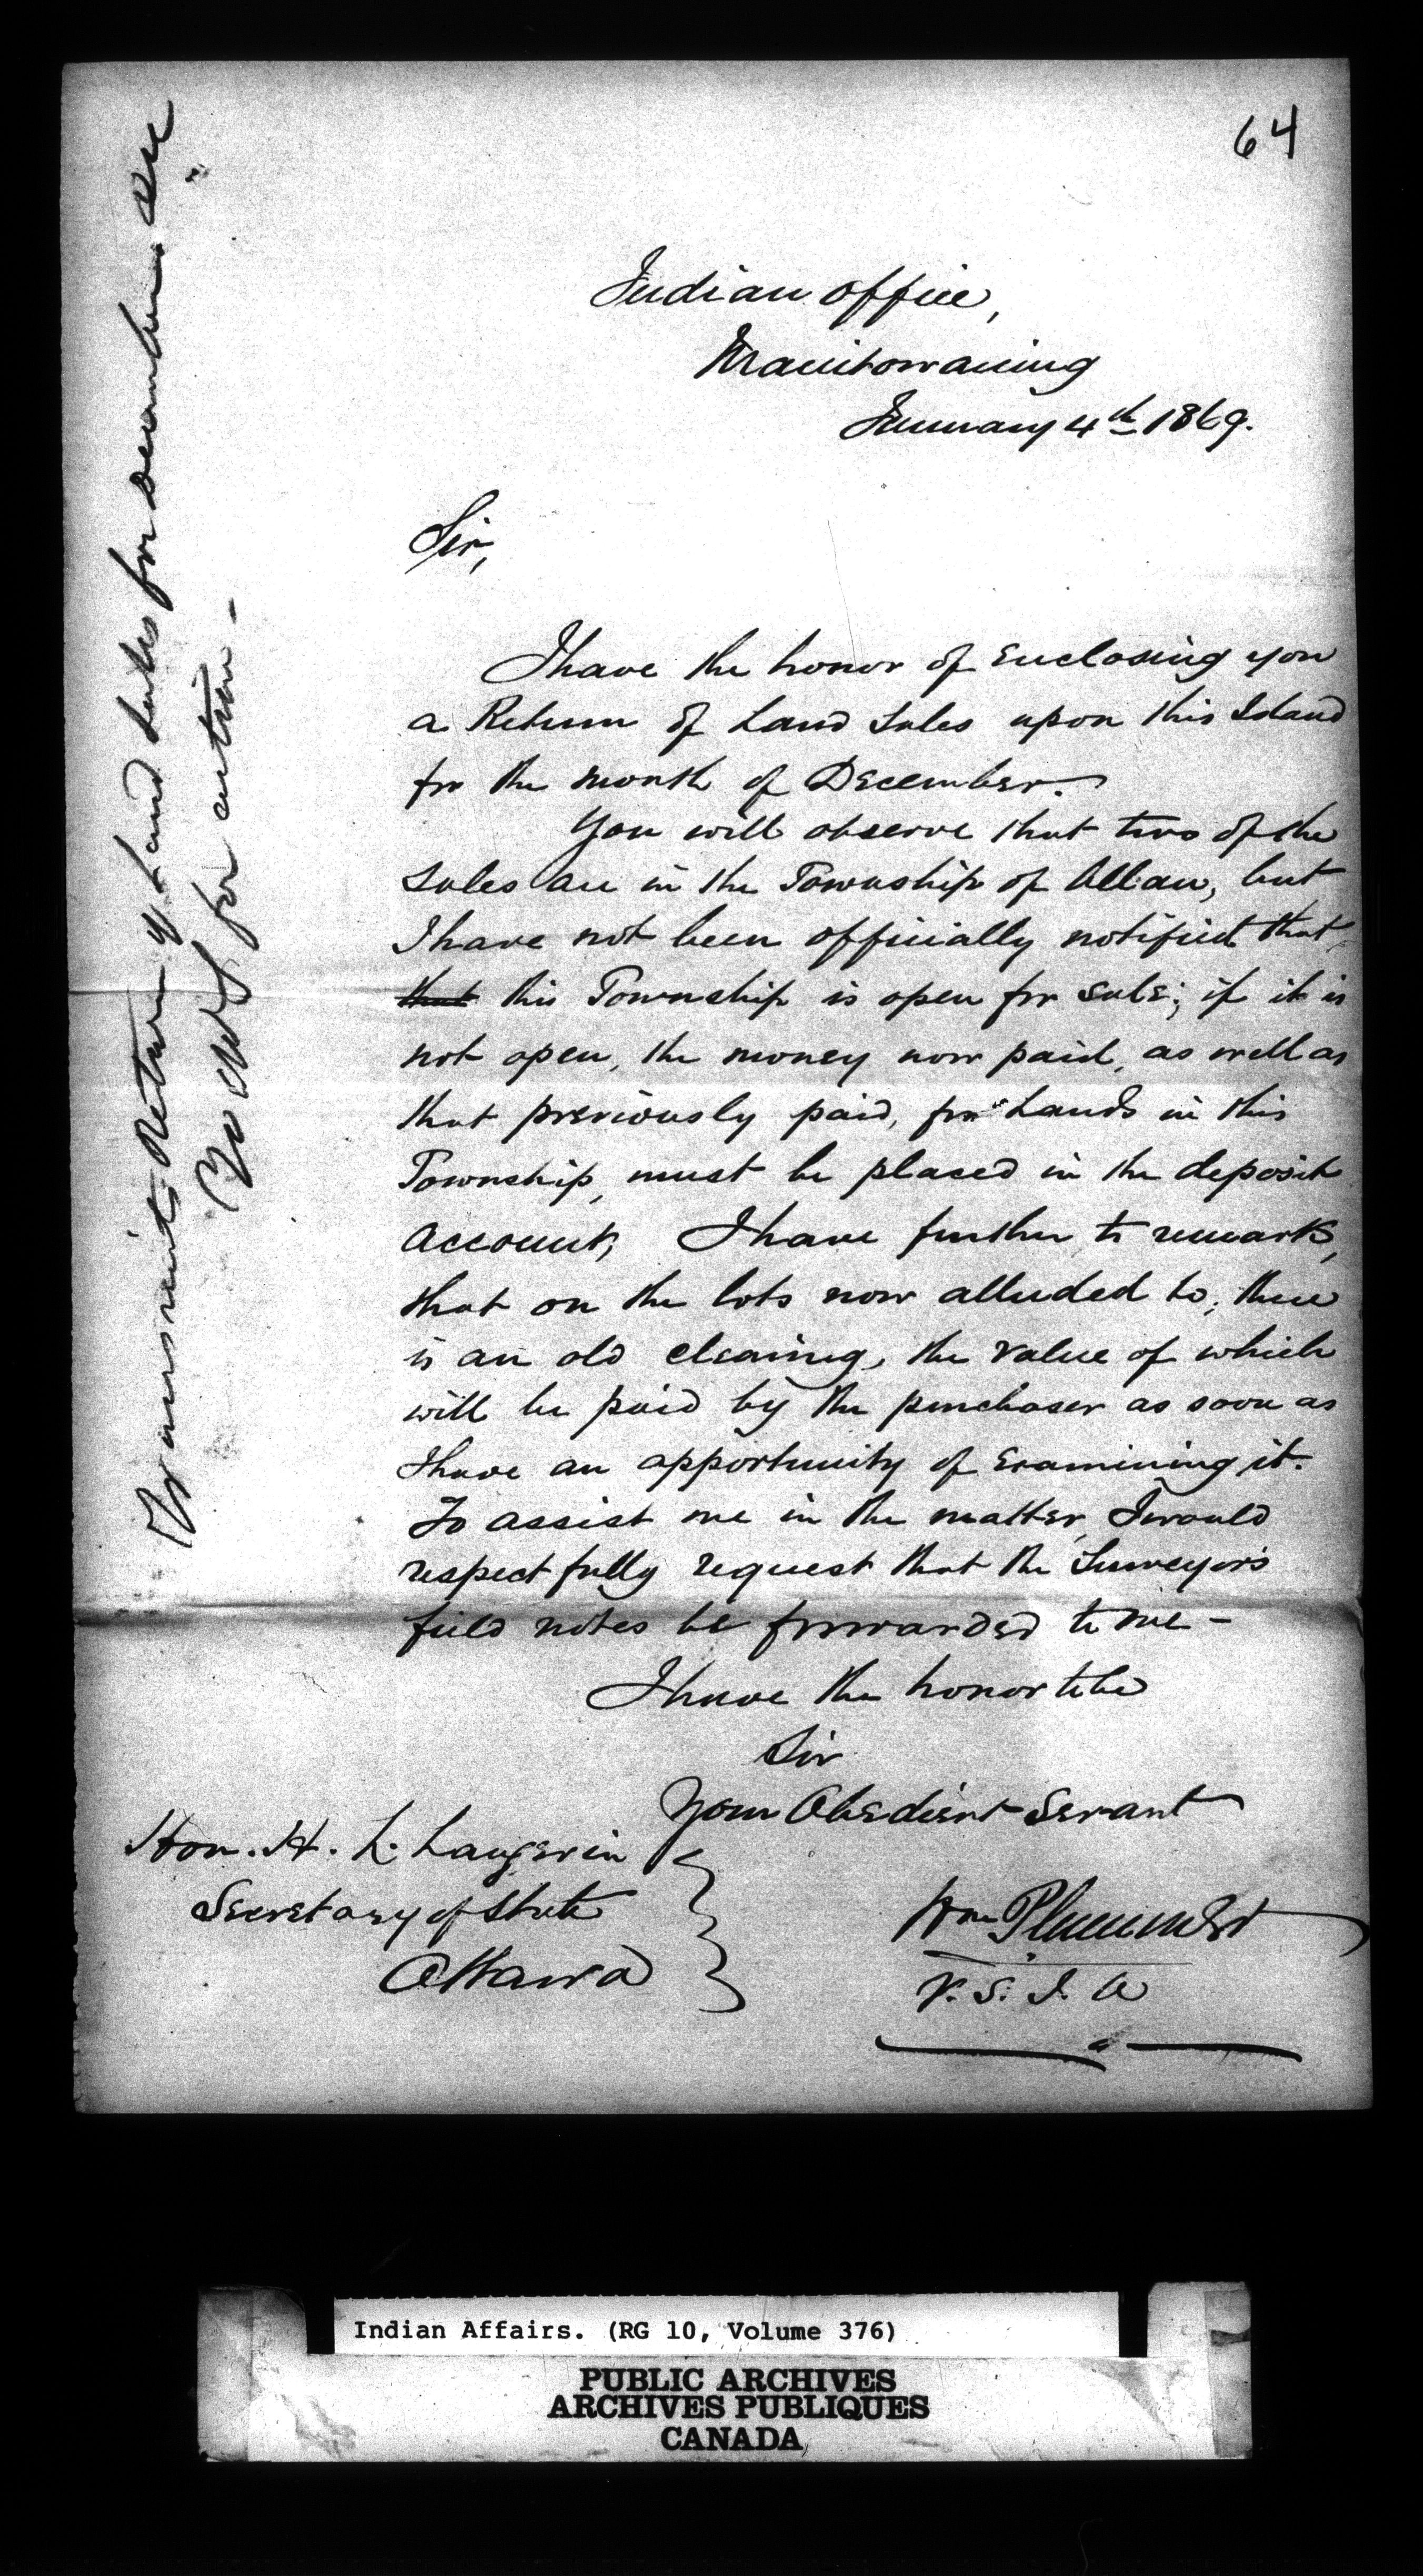 64
Indian Office,
Manitowaning
January 4th 1869.
Sir,
I have the honor of enclosing you
a Return of Land Sales upon this Island
for the month of December.
You will observe that two of the
Sales are in the Township of Allan, but
I have not been officially notified that
that this Township is open for sale; if it is
not open, the money now paid, as well as
that previously paid, for Lands in this
Township, must be placed in the deposit
account; I have further to remark,
that on the lots now alluded to, there
is an old clearing, the value of which
will be paid by the purchaser as soon as
I have an opportunity of examining it.
To assist me in the matter, I would
respectfully request that the Surveyor's
field notes be forwarded to me –
I have the honor to be
Sir
Your Obedient Servant
Hon. H. L. Langevin
Secretary of State
Ottawa
Wm Plummer
V. S. I. A
Transmits Return of Land Sales for December
for action –
Indian Affairs. (RG 10, Volume 376)
PUBLIC ARCHIVES
ARCHIVES PUBLIQUES
CANADA